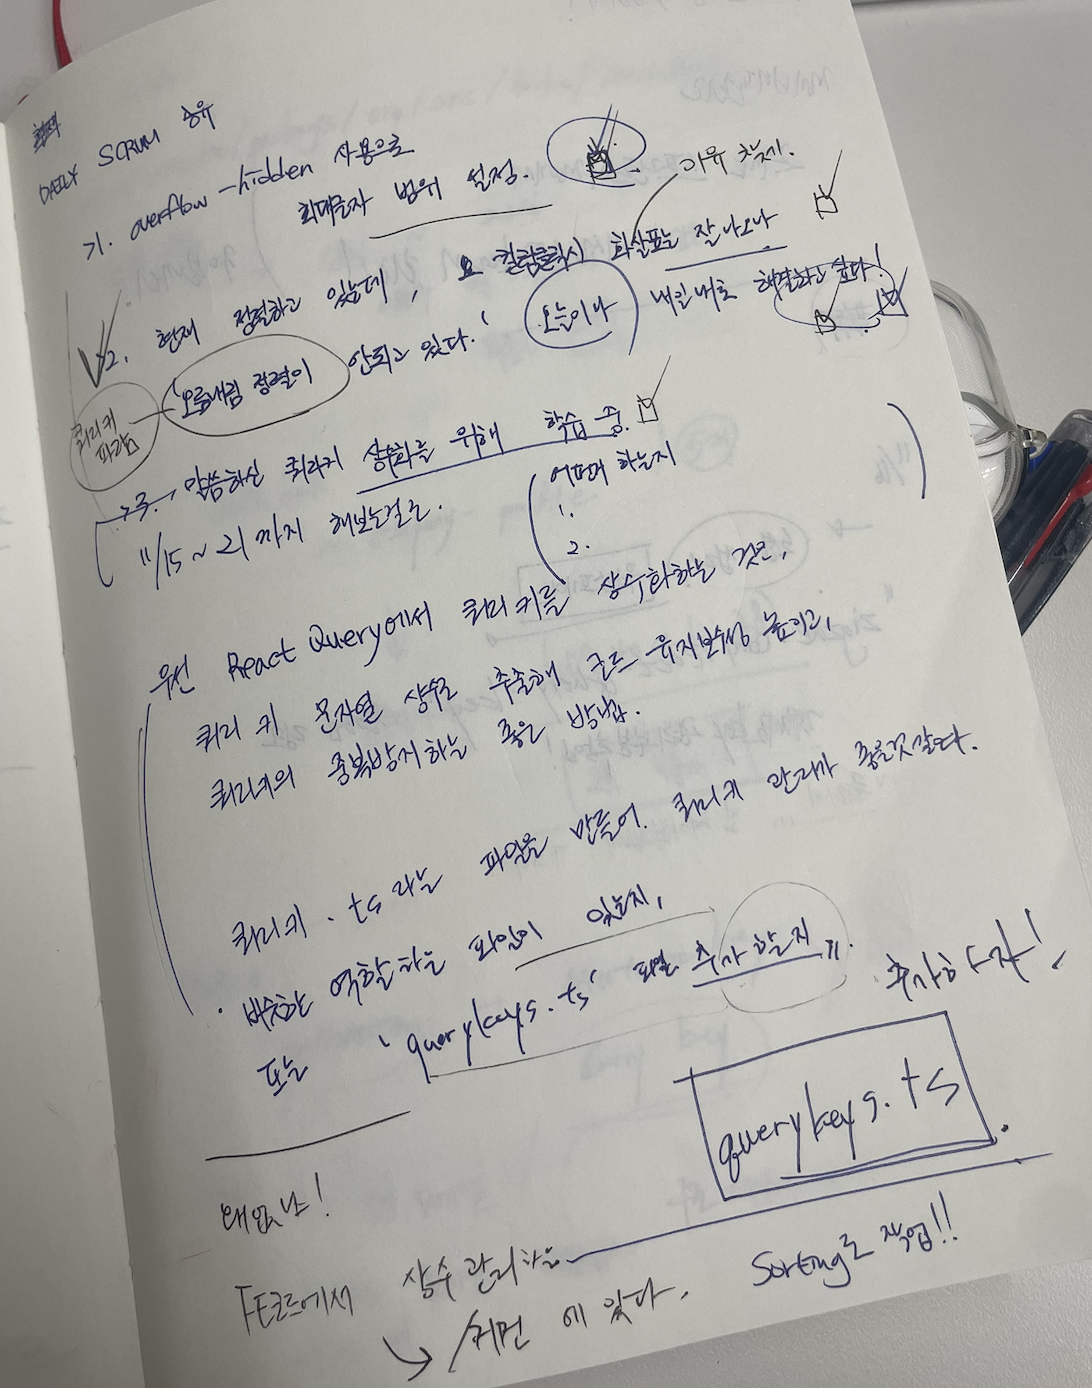 DAILY SCRUM 공유
기. overflow-hidden 사용으로
최대글자 범위 설정.
이유 찾기.
2. 현재 정렬하고 있는데, 요 컬럼클릭시 화살표는 잘나오나
'오름내림 정렬이 안되고 있다.' 오늘이나 내일 내로 해결하고 싶다!
쿼리키
파람
3. 말씀하신 쿼리키 상수화를 위해 학습 중.
11/15 ~ 21까지 해보는걸로.
어떠메 하는지
1.
2.
우선 React Query에서 쿼리 키를 상수화하는 것은,
쿼리 키 문자열 상수로 추출해 코드 유지보수성 높이고,
쿼리키의 중복방지하는 좋은 방법.
쿼리키.ts 라는 파일을 만들어. 쿼리키 관리가 좋을것같다.
· 비슷한 역할하는 파일이 있는지,
또는 'querykeys.ts' 파일 추가할지 !!.
추가하자!
querykeys.ts
왜 없냐!
FE코드에서 상수관리하는
↘ 에 있다. Sorting로 작업!!